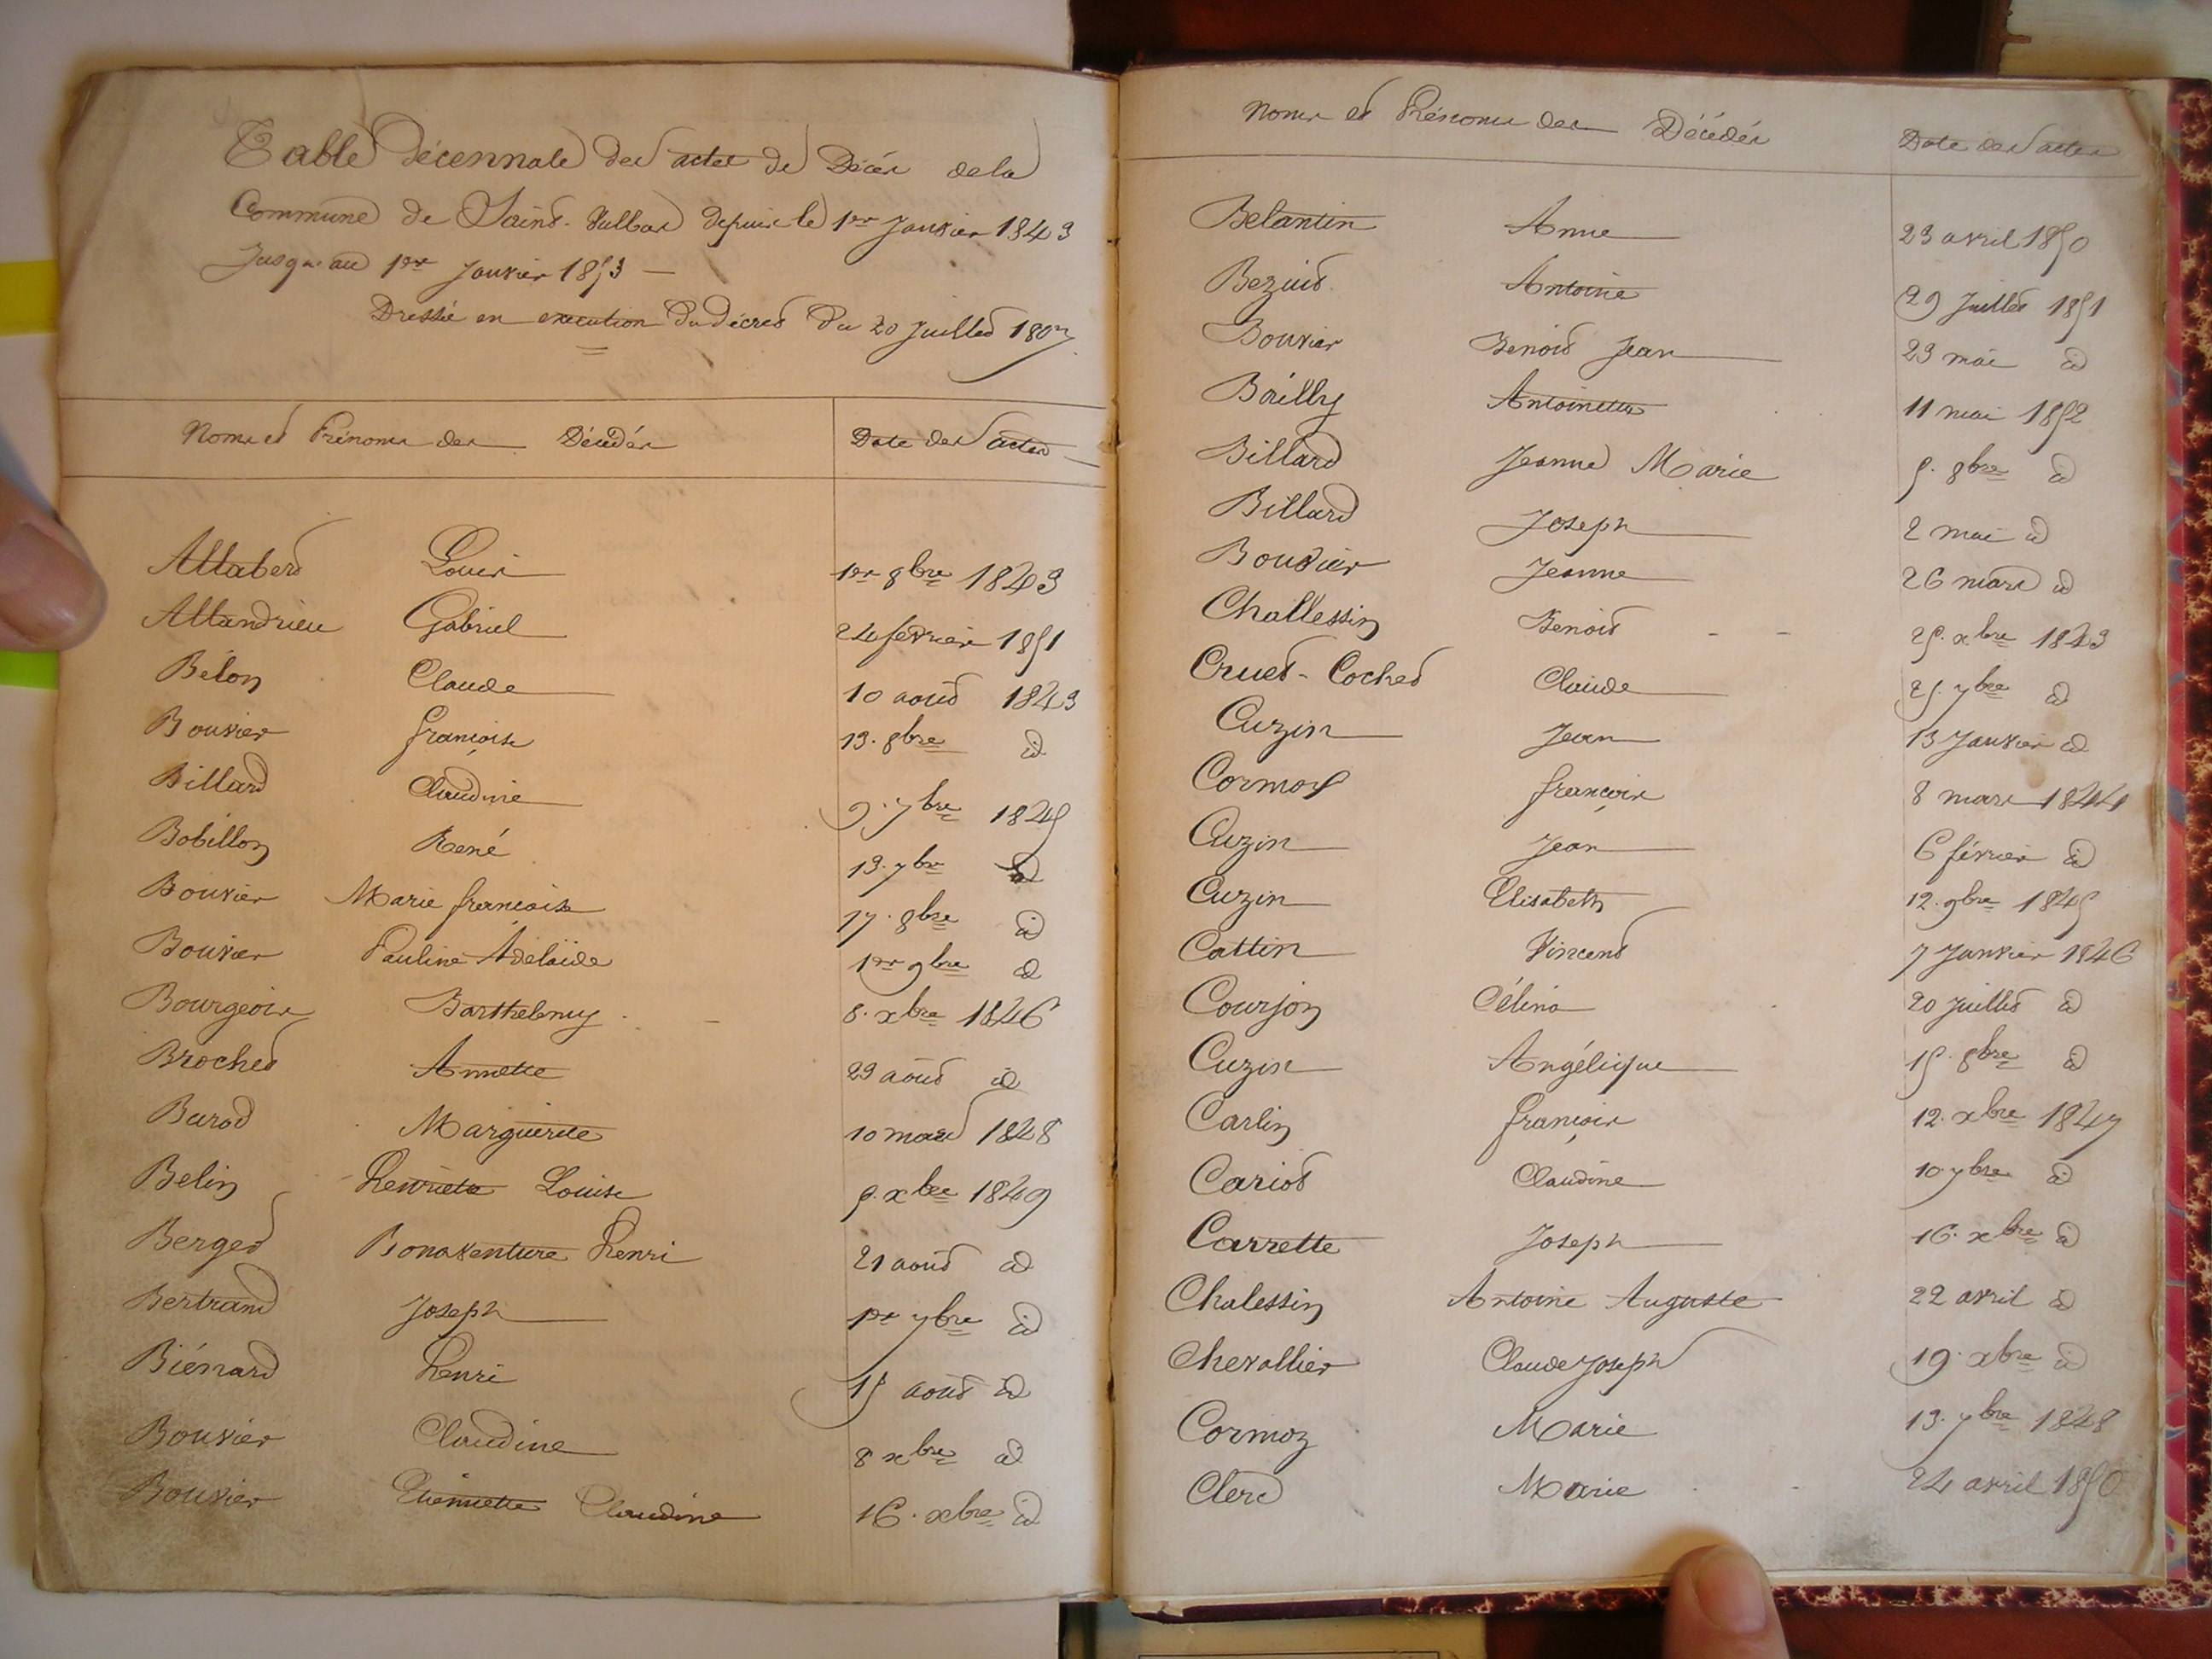 Table Décennale des actes de Décès de la
Commune de Saint-Vulbas depuis le 1er Janvier 1843
Jusqu'au 1er Janvier 1853 —
Dressée en execution du décret du 20 Juillet 1807
Noms et Prénoms des Décédés Date des actes
Allabert Louis 1er 8bre 1843
Allandrieu Gabriel 24 février 1851
Bélon Claude 10 août 1843
Bouvier françoise 13. 8bre id
Billard Claudine 9. 7bre 1845
Bobillon René 13. 7bre id
Bouvier Marie françoise 17. 8bre id
Bouvier Pauline Adélaïde 1er 9bre id
Bourgeois Barthelemy 8. xbre 1846
Brochet Annette 23 août id
Barod Marguerite 10 mars 1848
Belin henriette Louise 5. xbre 1849
Berget Bonaventure henri 21 août id
Bertrand Joseph 1er 7bre id
Biénard henri 15 août id
Bouvier Claudine 8 xbre id
Bouvier Etiennette Claudine 16. xbre id
Noms et Prénoms des Décédés Date des actes
Belantin Anne 23 avril 1850
Bezuit Antoine 29 Juillet 1851
Bouvier Benoit Jean 23 mai id
Bailly Antoinette 11 mai 1852
Billard Jeanne Marie 5. 8bre id
Billard Joseph 2 mai id
Bouvier Jeanne 26 mars id
Challessin Benoit 25. xbre 1843
Cruet-Cochet Claude 25. 7bre id
Cuzin Jean 13 Janvier id
Cormoz françois 8 mars 1844
Cuzin Jean 6 février id
Cuzin Elisabeth 12. 9bre 1845
Cattin Vincent 7 Janvier 1846
Courjon Célina 20 juillet id
Cuzin Angélique 15. 8bre id
Carlin françois 12. xbre 1847
Cariot Claudine 10 7bre id
Carrette Joseph 16. xbre id
Chalessin Antoine Auguste 22 avril id
Chevallier Claude Joseph 19. xbre id
Cormoz Marie 13. 7bre 1848
Clerc Marie 24 avril 1850